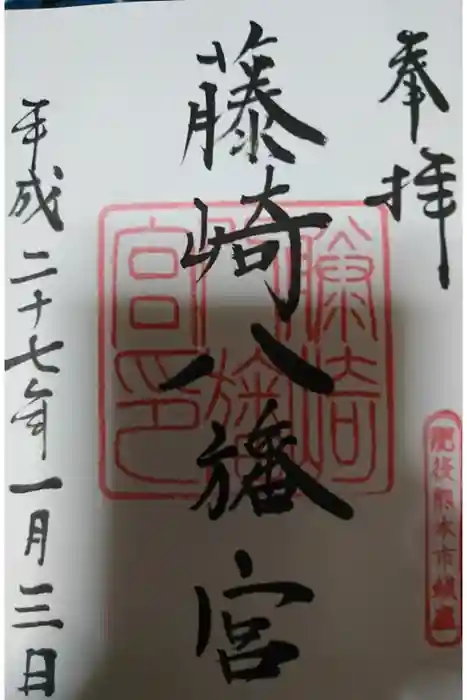 奉拝
肥後熊本市鎮座
藤崎八旛宮
藤崎
八旛
宮印
平成二十七年一月三日